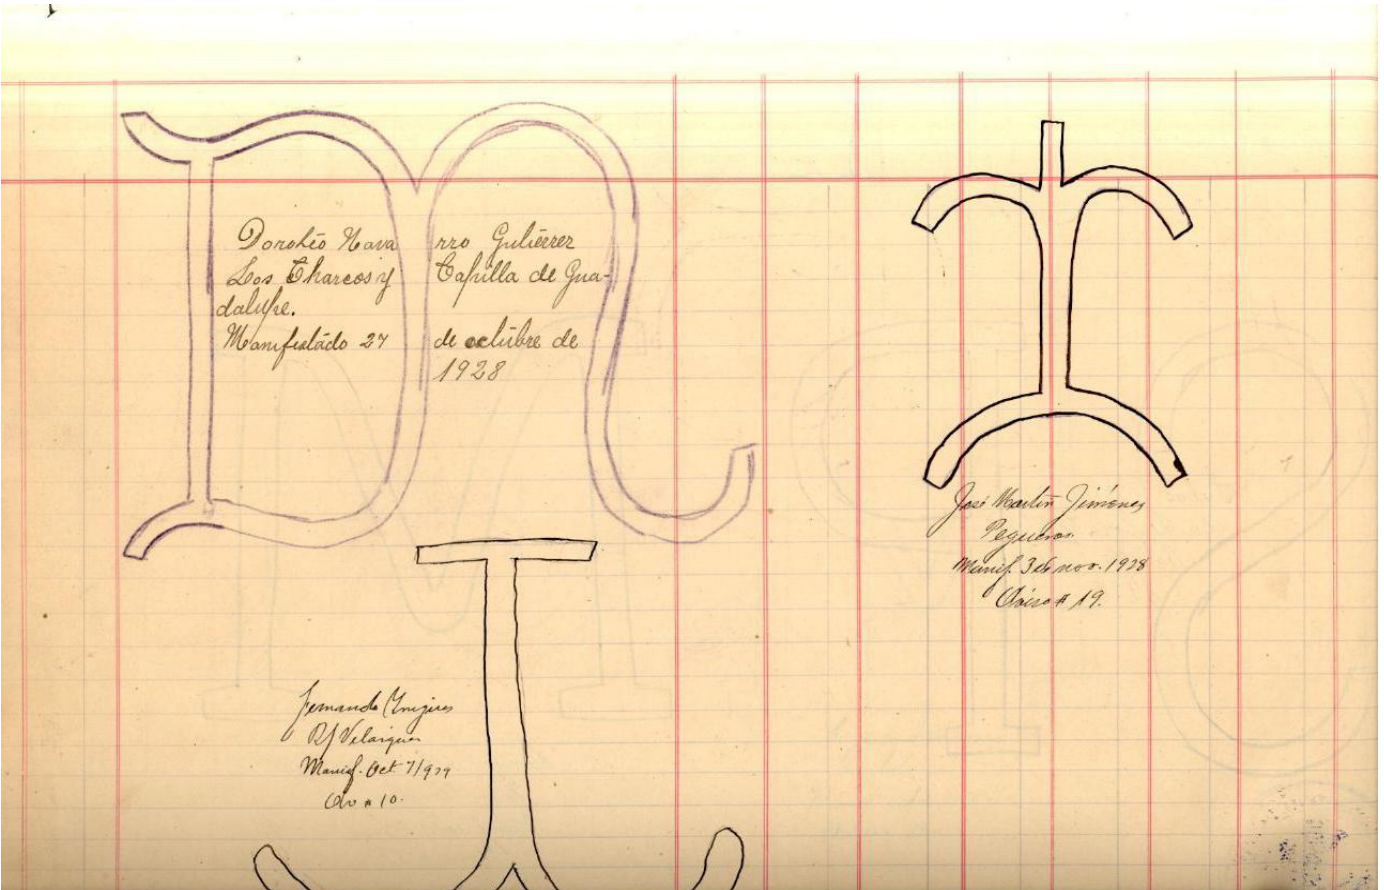 Dorotéo Navarro Gutiérrez
Los Charcos y Capilla de Gua-
dalupe.
Manifestádo 27 de octúbre de
1928
José Martín Jiménez
Pegueros.
Manif. 3 de nov. 1928
# 19.
Fernando
Manif. Oct. 7/929
# 10.